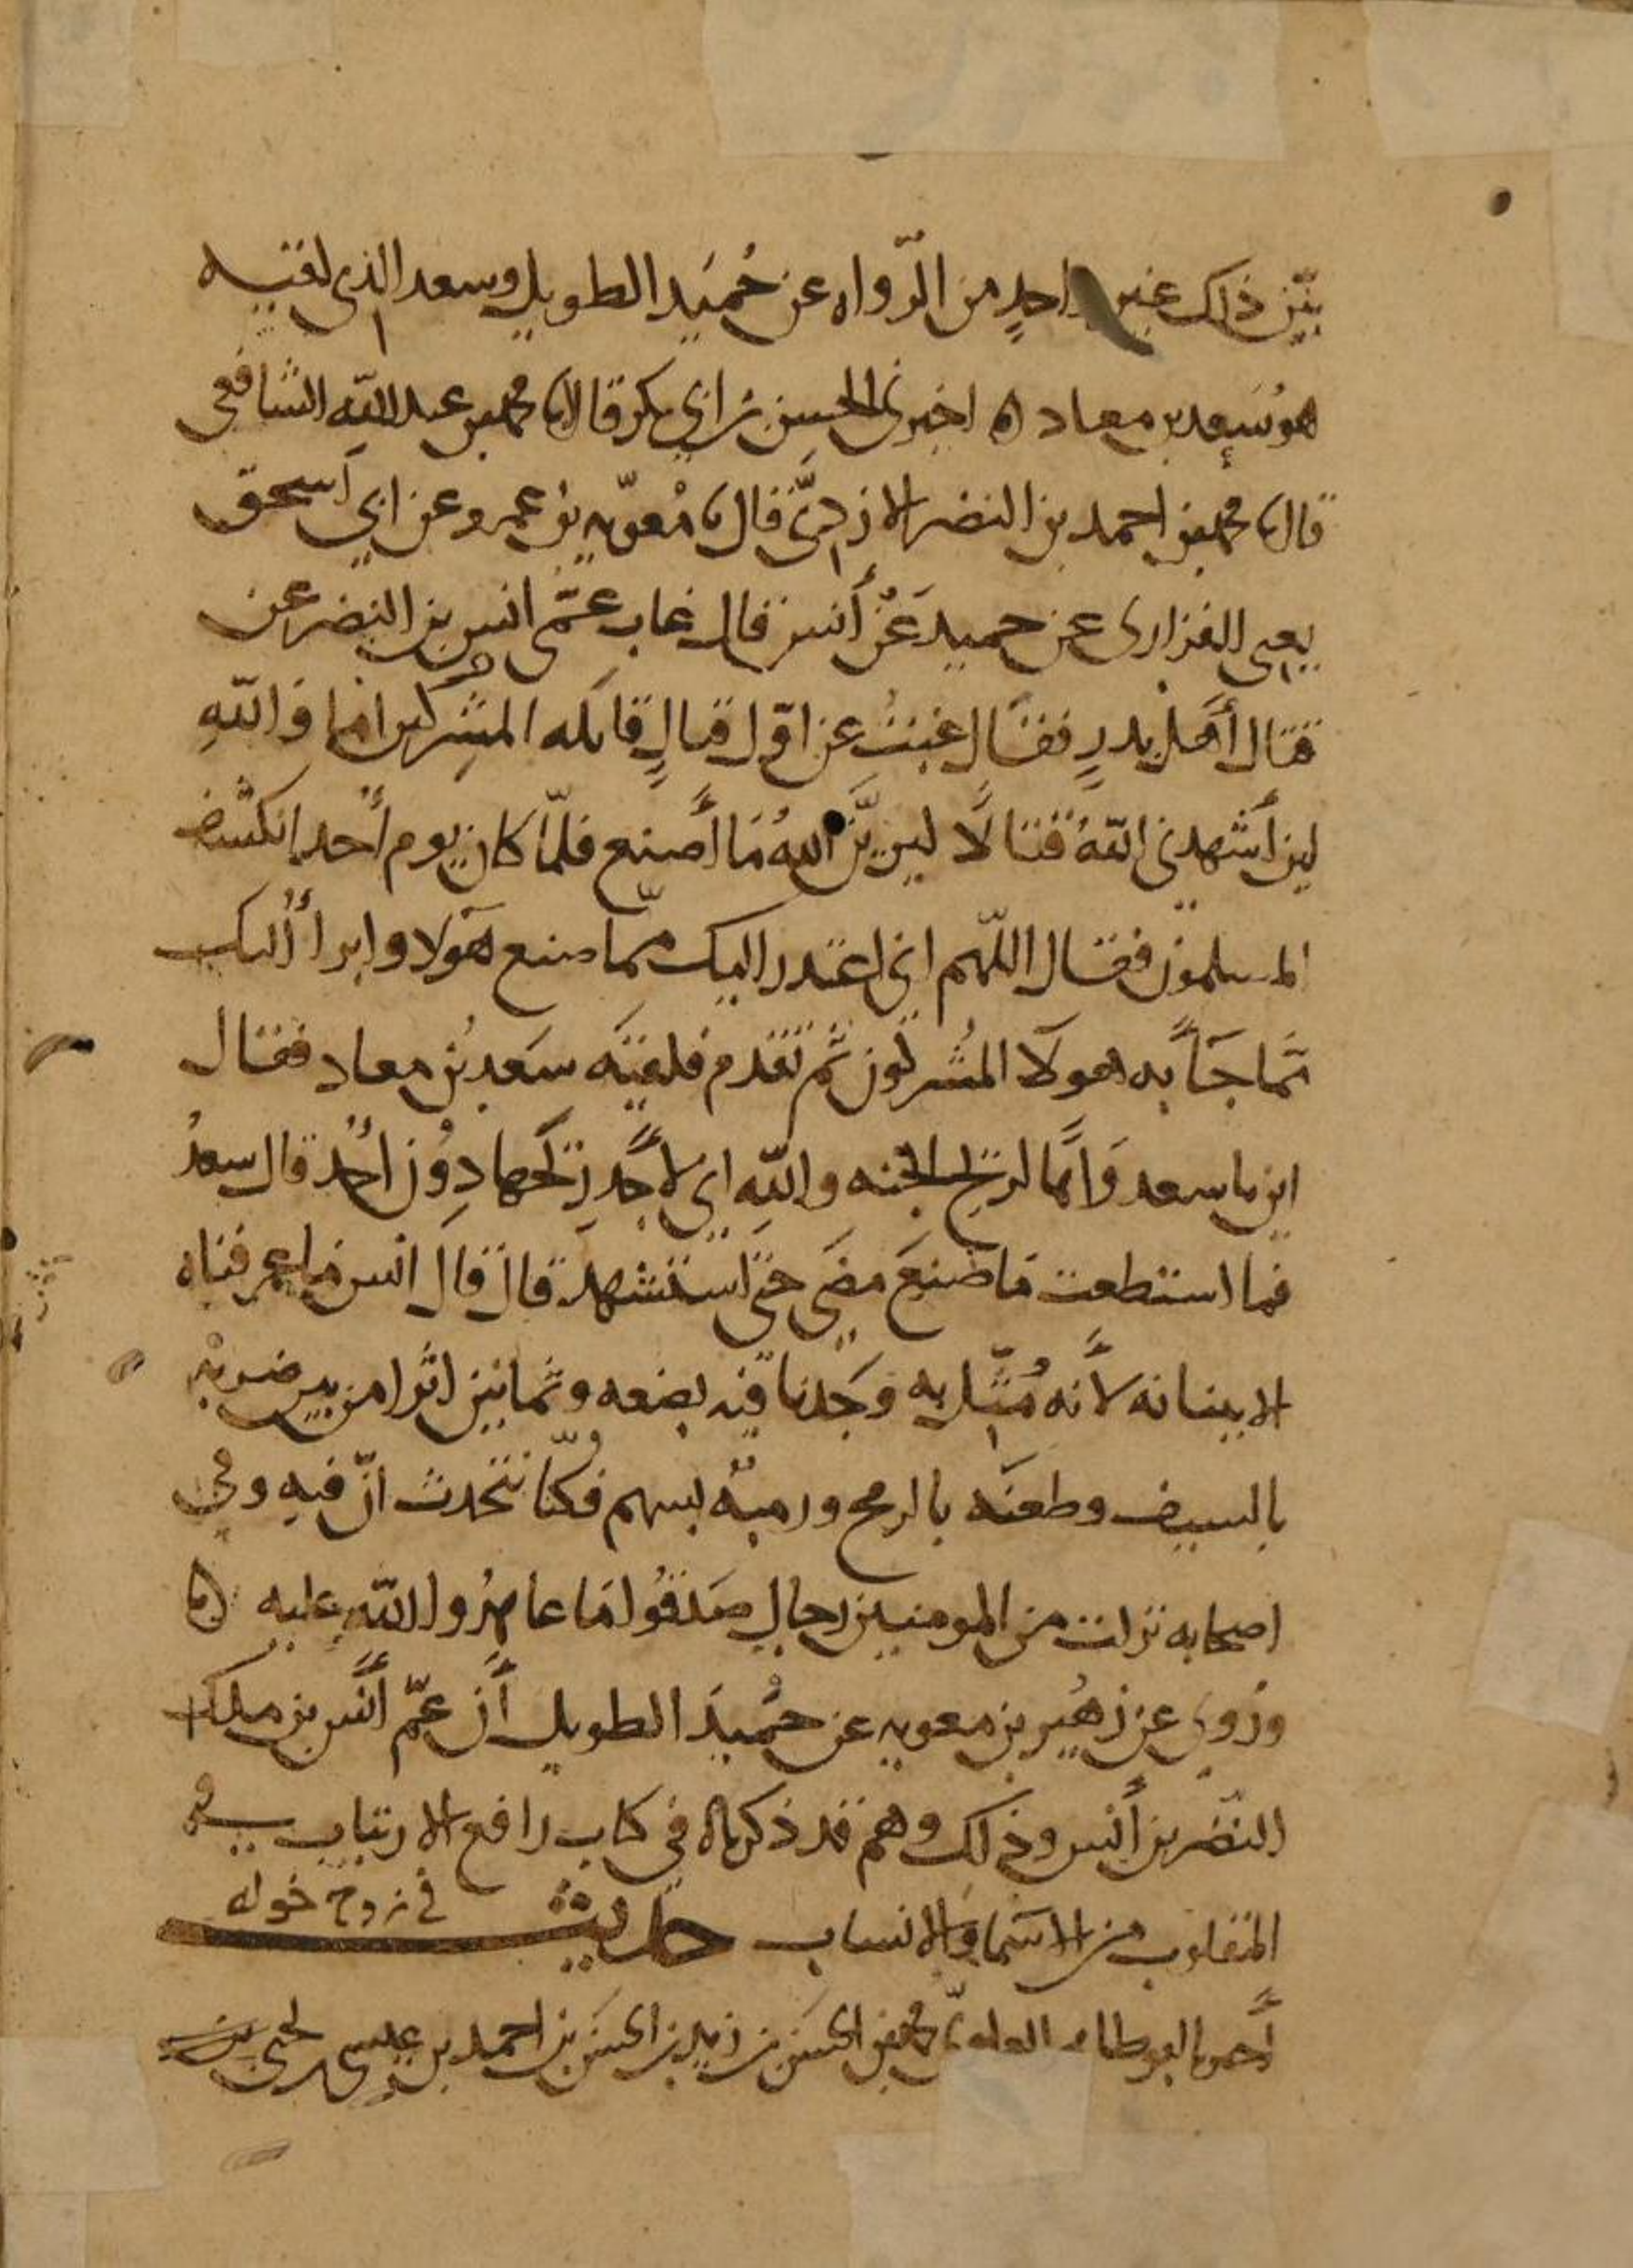 بيّن ذلك غير واحدٍ من الرّواه عن حُميَد الطويل وسعد الذي لقيه
هو سَعد بن معاد ه اخبرنى الحسن بن ابي بكر قال انا محمد بن عبد الله الشافعى
قال نا محمد بن احمد بن النضر الازديّ قال نا مُعوّيه بن عمرو عن ابي اسحق
يعنى الفزارى عن حميد عَنْ أَنس قال غاب عمّى انس بن النضر عن
قتال أهل بدرٍ فقال غبتُ عن اوّل قتالٍ قاتله المشركين اما وَاللّهِ
لين أشهدنى اللّهُ قتالًا ليريَنَّ اللهُ مَا أَصنع فلمّا كان يوم أُحد انكشف
المسلمون فقال اللّهم انى اعتدر اليك مما صنع هَولا وابرأ اليك
ممّا جَآ به هولا المُشركون ثم تقدم فلقيَه سَعد بُن معاد فقال
اين يا سعد وَاهًا لريح الجنه واللّهِ انى لأَجِدُ ريَحها دوُن أُحُد قال سعدُ
فما استطعت ما صَنعَ مضَى حَتى استشهد قال قالَ انس فما عرفناه
الا ببنانه لأَنه مُثّل به وَجَدنا فيه بضعه وثمانين اثرا من بين ضربهٍ
بالسيف وطعنَه بالرمح ورميهُ بسهم فكنّا نتحدث انّ فيهِ وفى
اصحابه نزلت من المومنين رجال صَدقُوا مَا عاهدُوا اللّه عليه ه
ورُوي عن زهُير بن معويه عن حُميدَ الطويل أَن عمّ أَنَس بن ملك
النضْر بن أَنس وذلك وهم قد ذكرناه فى كتاب رافع الارتياب فى
المقلوب من الاسَما وَالانساب حديث فى زوج خوله
أَخبرنا ابو طالب العلوىّ محمد بن الحسَن بن زيد بن الحسَن بن احمد بن عيسى بن يحيى بن